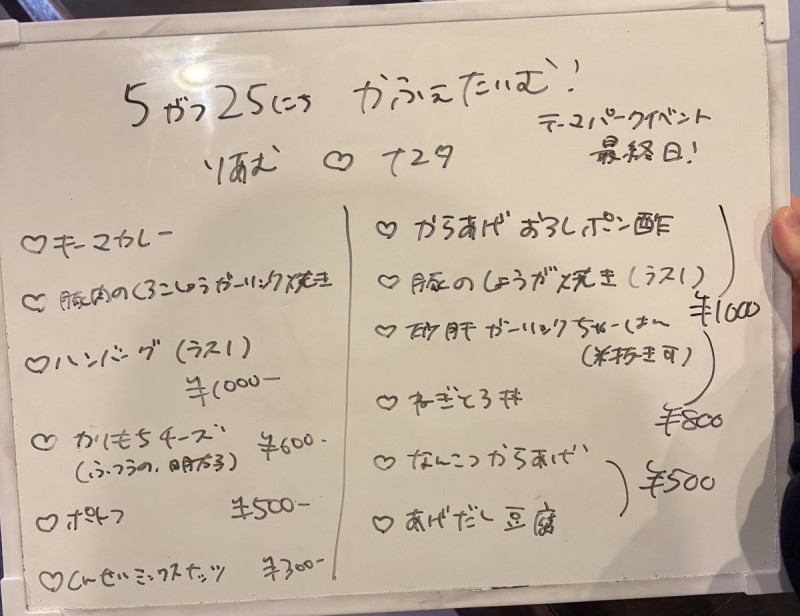 5がつ25にち かふぇたいむ!
テーマパークイベント
最終日!
りあむ ♡ ナユタ
♡ キーマカレー
♡ 豚肉のくろこしょうガーリック焼き
♡ ハンバーグ (ラス1)
¥1000-
♡ かりもちチーズ ¥600-
(ふつうの、明太子)
♡ ポトフ ¥500-
♡ くんせいミックスナッツ ¥300-
♡ からあげ おろしポン酢
♡ 豚のしょうが焼き (ラス1)
¥1000
♡ 砂肝ガーリックちゃーはん
(米抜き可)
♡ ねぎとろ丼
¥800
♡ なんこつからあげ
¥500
♡ あげだし豆腐